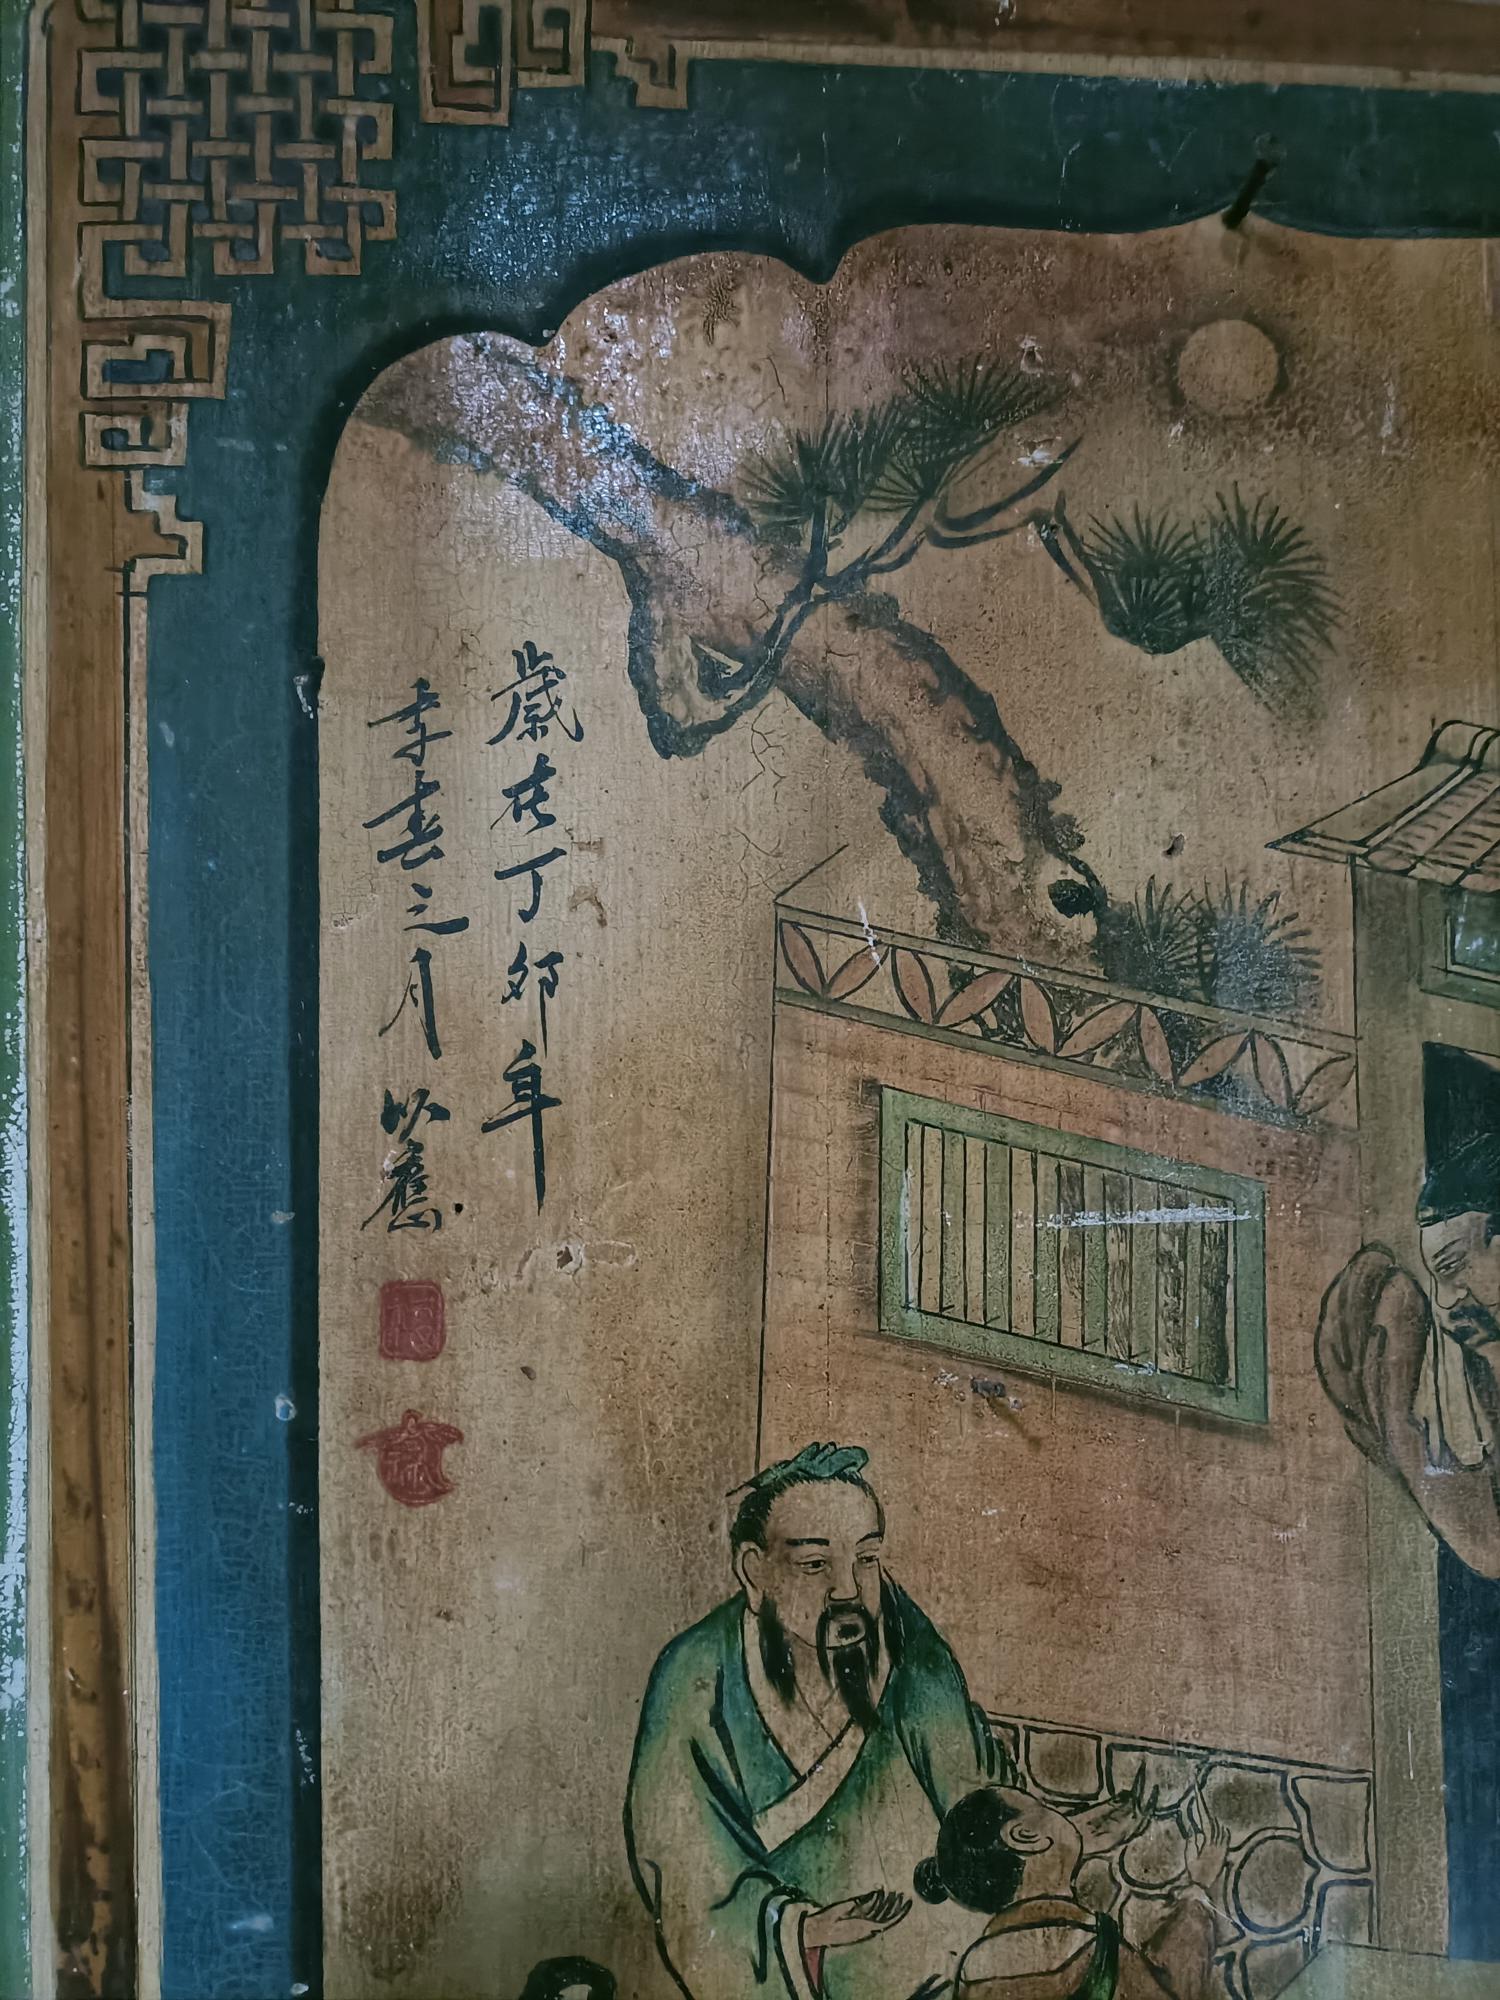 歲在丁卯年
季春之月以應